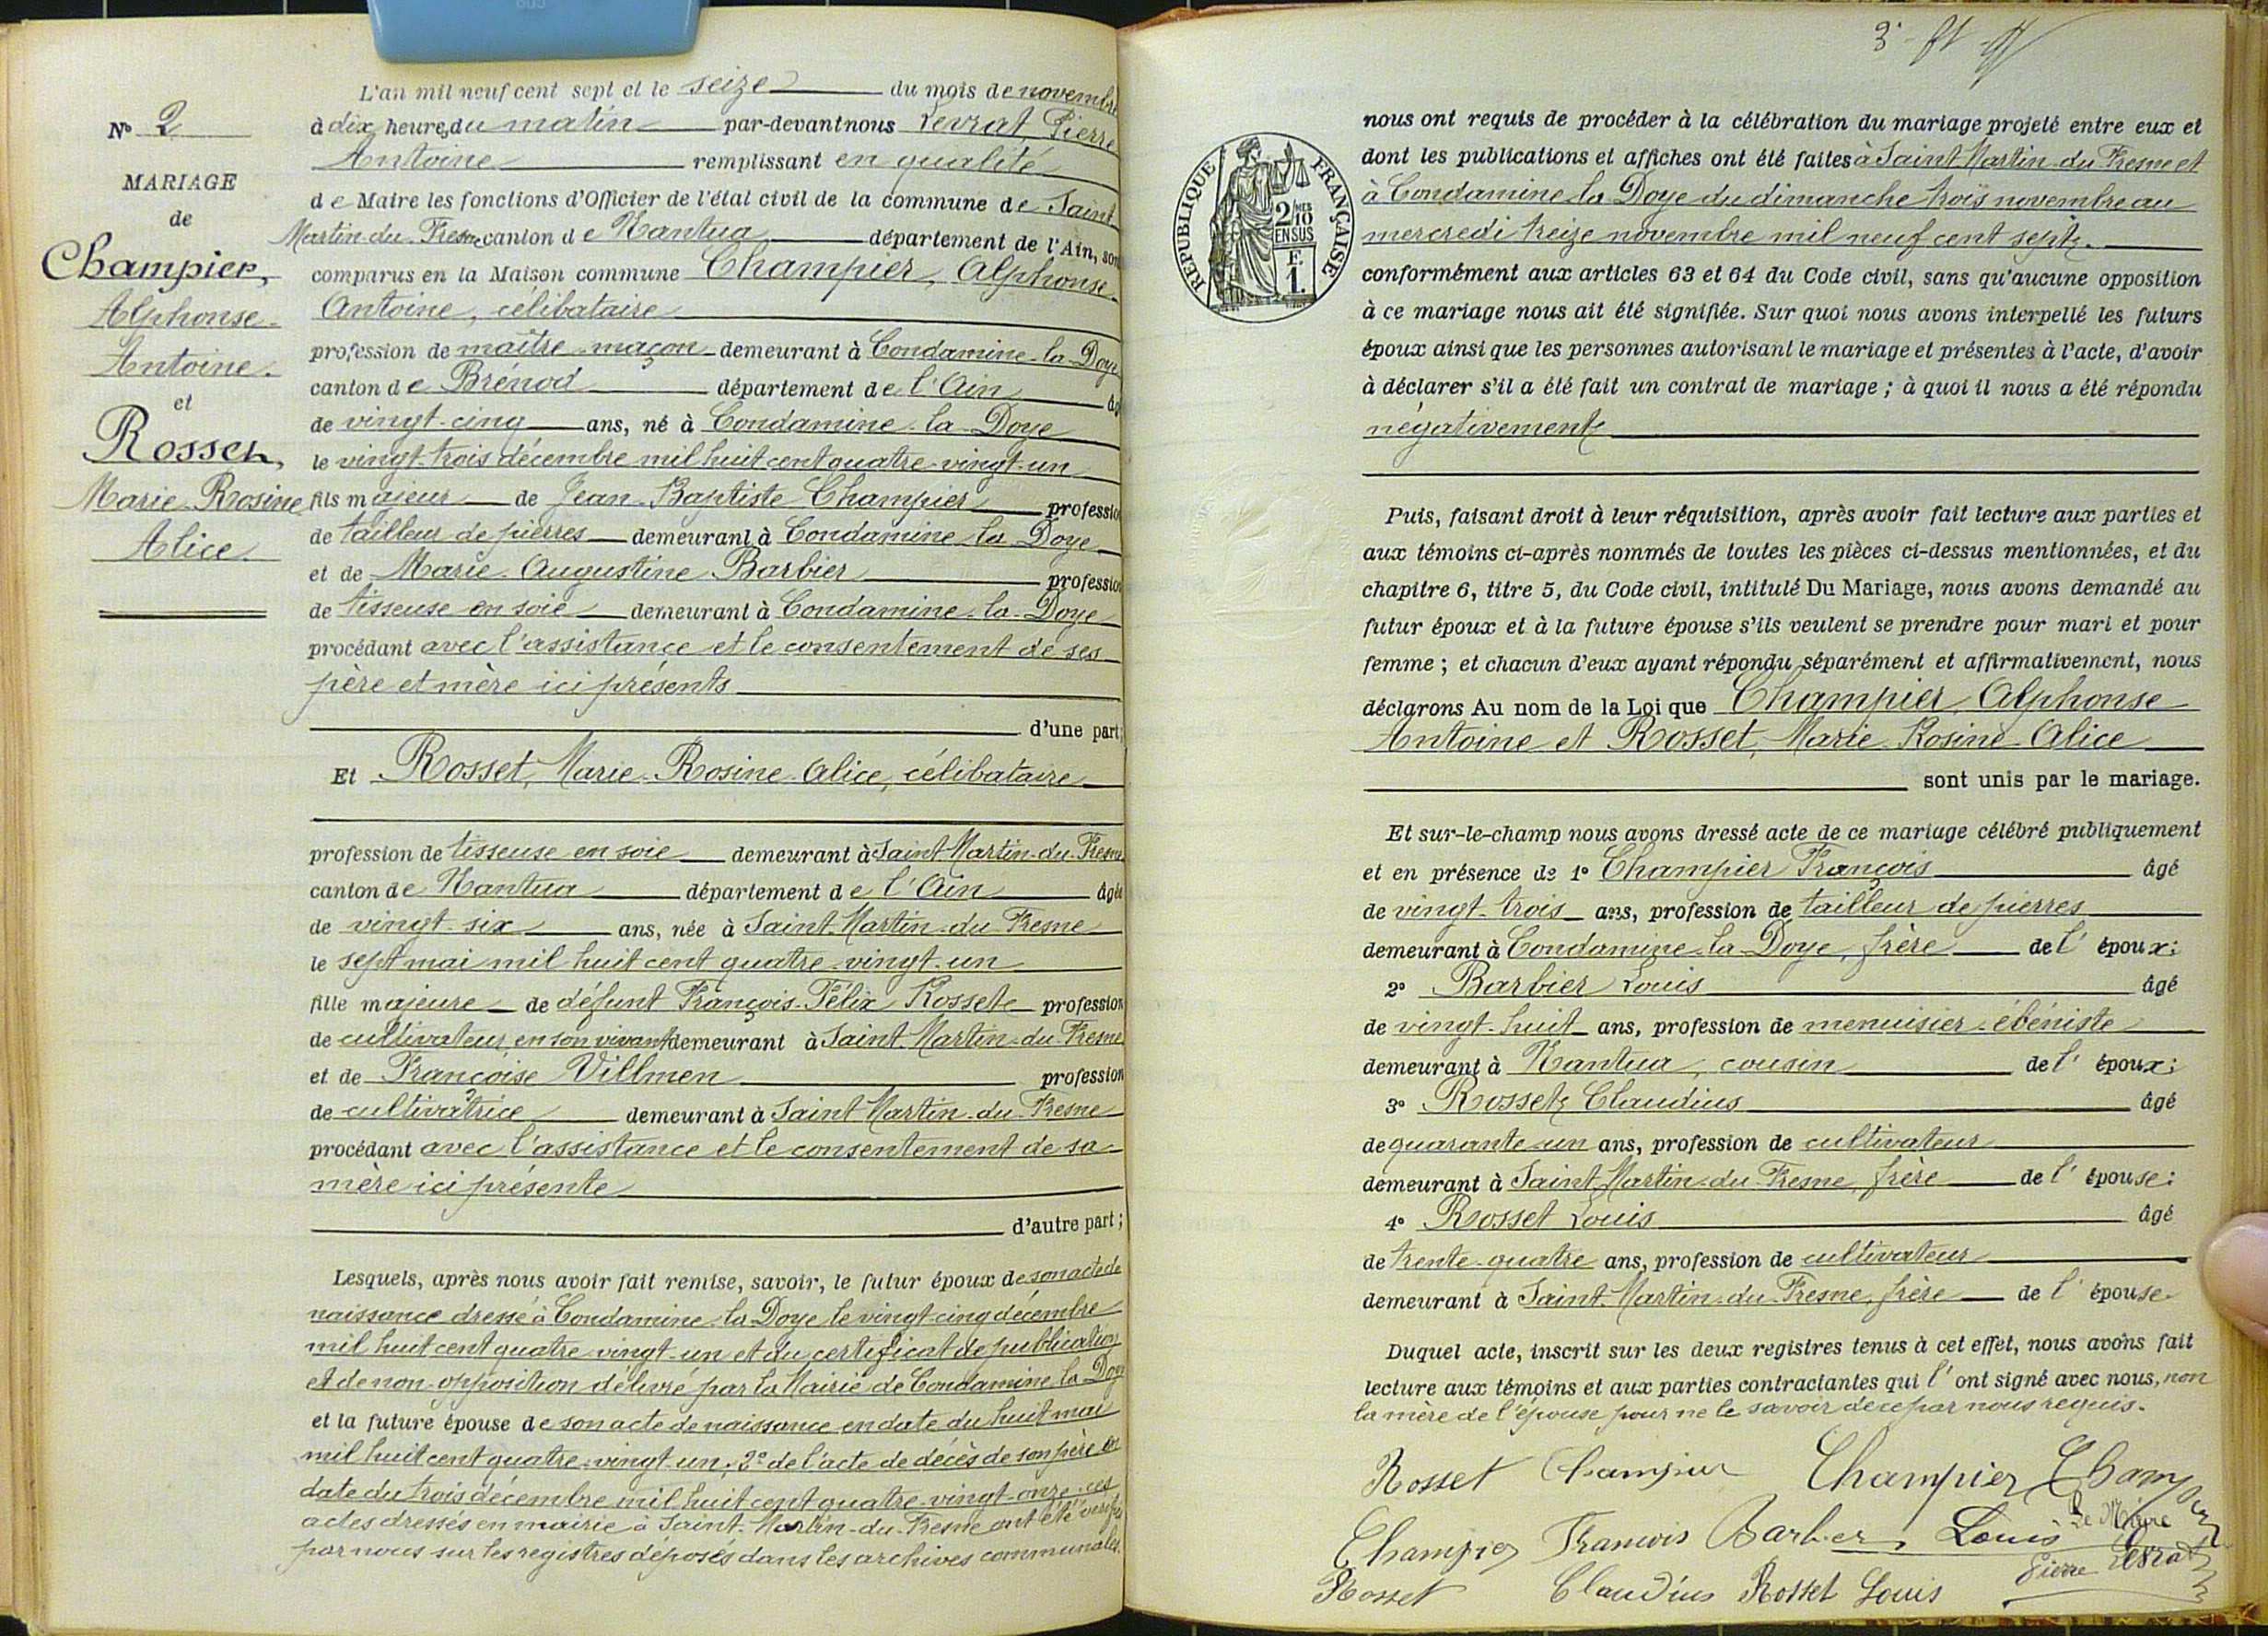 N° 2
MARIAGE
de
Champier,
Alphonse-
Antoine.
et
Rosset,
Marie-Rosine
Alice.
L'an mil neuf cent sept et le seize du mois de novembre
à dix heures du matin par-devant nous Levrat Pierre
Antoine remplissant en qualité
de Maire les fonctions d'Officier de l'état civil de la commune de Saint
Martin-du-Fresne canton de Nantua département de l'Ain, sont
comparus en la Maison commune Champier, Alphonse-
Antoine, célibataire
profession de maître-maçon demeurant à Condamine-la-Doye
canton de Brénod département de l'Ain âgé
de vingt-cinq ans, né à Condamine-la-Doye
le vingt-trois décembre mil huit cent quatre-vingt-un
fils majeur de Jean-Baptiste Champier profession
de tailleur de pierres demeurant à Condamine-la-Doye
et de Marie-Augustine Barbier profession
de tisseuse en soie demeurant à Condamine-la-Doye
procédant avec l'assistance et le consentement de ses
père et mère ici présents
d'une part;
Et Rosset, Marie-Rosine-Alice, célibataire
profession de tisseuse en soie demeurant à Saint-Martin-du-Fresne
canton de Nantua département de l'Ain âgée
de vingt-six ans, née à Saint-Martin-du-Fresne
le sept mai mil huit cent quatre-vingt-un
fille majeure de défunt François-Félix Rosset profession
de cultivateur en son vivant demeurant à Saint-Martin-du-Fresne
et de Françoise Villmen profession
de cultivatrice demeurant à Saint-Martin-du-Fresne
procédant avec l'assistance et le consentement de sa
mère ici présente
d'autre part;
Lesquels, après nous avoir fait remise, savoir, le futur époux de son acte de
naissance dressé à Condamine-la-Doye le vingt-cinq décembre
mil huit cent quatre-vingt-un et du certificat de publication
et de non-opposition délivré par la Mairie de Condamine-la-Doye
et la future épouse de son acte de naissance en date du huit mai
mil huit cent quatre-vingt-un, 2° de l'acte de décès de son père en
date du trois décembre mil huit cent quatre-vingt-onze, ces
actes dressés en mairie à Saint-Martin-du-Fresne ont été vérifiés
par nous sur les registres déposés dans les archives communales.
RÉPUBLIQUE FRANÇAISE
2/10
EN SUS
F.
1.
nous ont requis de procéder à la célébration du mariage projeté entre eux et
dont les publications et affiches ont été faites à Saint-Martin-du-Fresne et
à Condamine-la-Doye du dimanche trois novembre au
mercredi treize novembre mil neuf cent sept.
conformément aux articles 63 et 64 du Code civil, sans qu'aucune opposition
à ce mariage nous ait été signifiée. Sur quoi nous avons interpellé les futurs
époux ainsi que les personnes autorisant le mariage et présentes à l'acte, d'avoir
à déclarer s'il a été fait un contrat de mariage ; à quoi il nous a été répondu
négativement
Puis, faisant droit à leur réquisition, après avoir fait lecture aux parties et
aux témoins ci-après nommés de toutes les pièces ci-dessus mentionnées, et du
chapitre 6, titre 5, du Code civil, intitulé Du Mariage, nous avons demandé au
futur époux et à la future épouse s'ils veulent se prendre pour mari et pour
femme ; et chacun d'eux ayant répondu séparément et affirmativement, nous
déclarons Au nom de la Loi que Champier, Alphonse
Antoine et Rosset, Marie-Rosine-Alice
sont unis par le mariage.
Et sur-le-champ nous avons dressé acte de ce mariage célébré publiquement
et en présence de 1° Champier François âgé
de vingt-trois ans, profession de tailleur de pierres
demeurant à Condamine-la-Doye, frère de l'époux;
2° Barbier Louis âgé
de vingt-huit ans, profession de menuisier-ébéniste
demeurant à Nantua, cousin de l'époux;
3° Rosset Claudius âgé
de quarante-un ans, profession de cultivateur
demeurant à Saint-Martin-du-Fresne, frère de l'épouse;
4° Rosset Louis âgé
de trente-quatre ans, profession de cultivateur
demeurant à Saint-Martin-du-Fresne, frère de l'épouse.
Duquel acte, inscrit sur les deux registres tenus à cet effet, nous avons fait
lecture aux témoins et aux parties contractantes qui l'ont signé avec nous, non
la mère de l'épouse pour ne le savoir de ce par nous requis.
Rosset Champier Champier Champier
Le Maire
Champier François Barbier Louis
Pierre Levrat
Rosset Claudius Rosset Louis